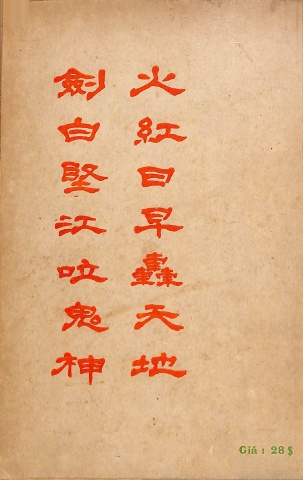 火紅日早轟天地
劍白堅江泣鬼神
Giá : 28 $